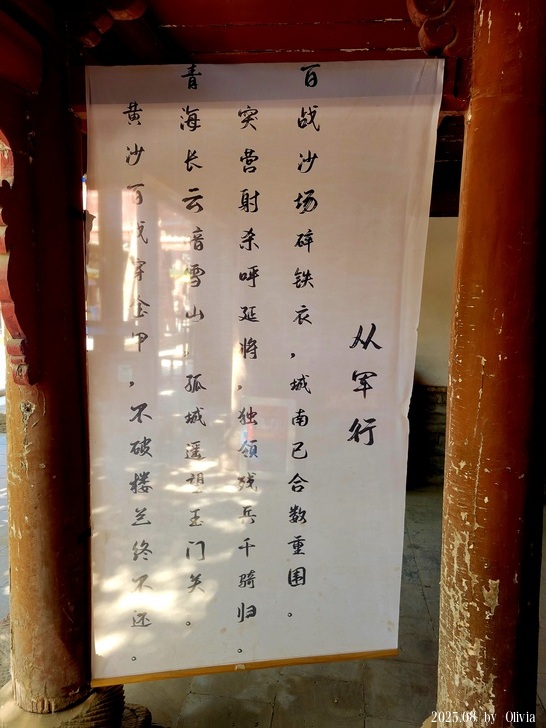 从军行
百战沙场碎铁衣，城南已合数重围。
突营射杀呼延将，独领残兵千骑归。
青海长云音雪山，孤城遥望玉门关。
黄沙百战穿金甲，不破楼兰终不还。
2025.08 by Olivia